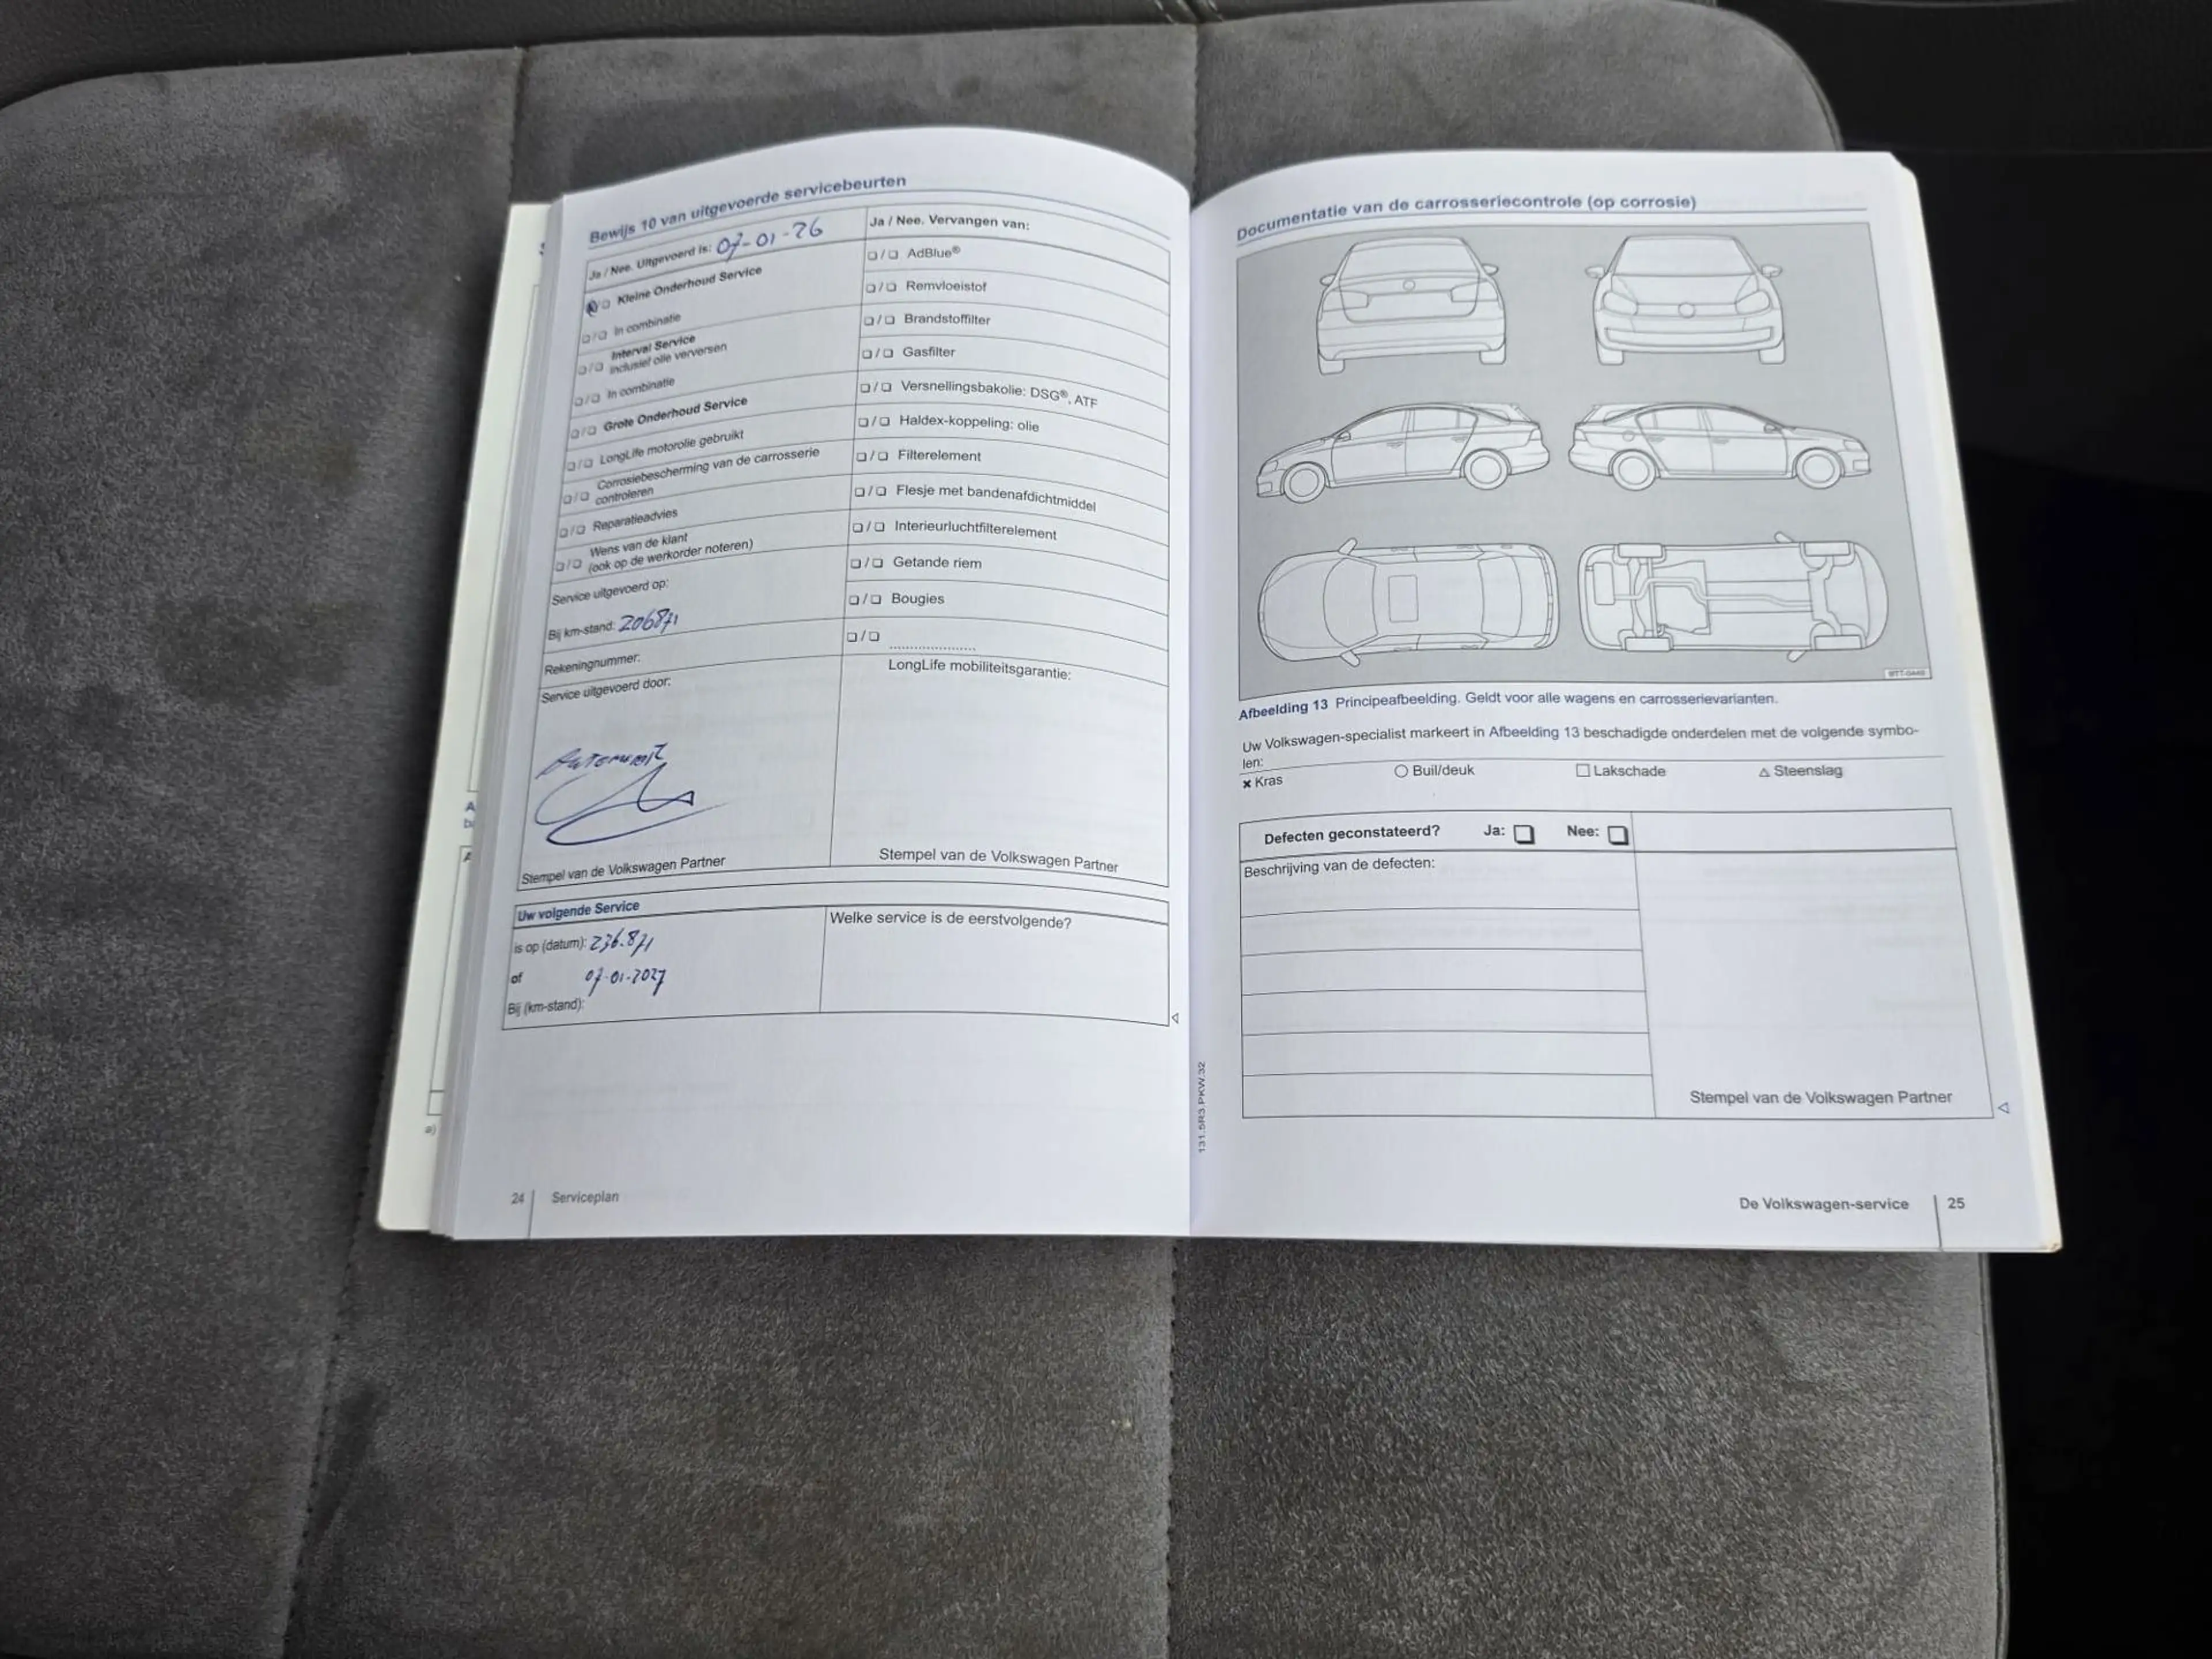 Bewijs 10 van uitgevoerde servicebeurten
Ja / Nee. Uitgevoerd is: 07-01-26
Kleine Onderhoud Service
In combinatie
Interval Service
inclusief olie verversen
In combinatie
Grote Onderhoud Service
LongLife motorolie gebruikt
Corrosiebescherming van de carrosserie
controleren
Reparatieadvies
Wens van de klant
(ook op de werkorder noteren)
Service uitgevoerd op:
Bij km-stand: 206871
Rekeningnummer:
Service uitgevoerd door:
Stempel van de Volkswagen Partner
Ja / Nee. Vervangen van:
AdBlue®
Remvloeistof
Brandstoffilter
Gasfilter
Versnellingsbakolie: DSG®, ATF
Haldex-koppeling: olie
Filterelement
Flesje met bandenafdichtmiddel
Interieurluchtfilterelement
Getande riem
Bougies
LongLife mobiliteitsgarantie:
Stempel van de Volkswagen Partner
Uw volgende Service
is op (datum): 236.871
of 07-01-2027
Bij (km-stand):
Welke service is de eerstvolgende?
24 Serviceplan
131.5R3.PKW.32
Documentatie van de carrosseriecontrole (op corrosie)
Afbeelding 13 Principeafbeelding. Geldt voor alle wagens en carrosserievarianten.
Uw Volkswagen-specialist markeert in Afbeelding 13 beschadigde onderdelen met de volgende symbo-
len:
Kras Buil/deuk Lakschade Steenslag
Defecten geconstateerd? Ja: Nee:
Beschrijving van de defecten:
Stempel van de Volkswagen Partner
De Volkswagen-service 25